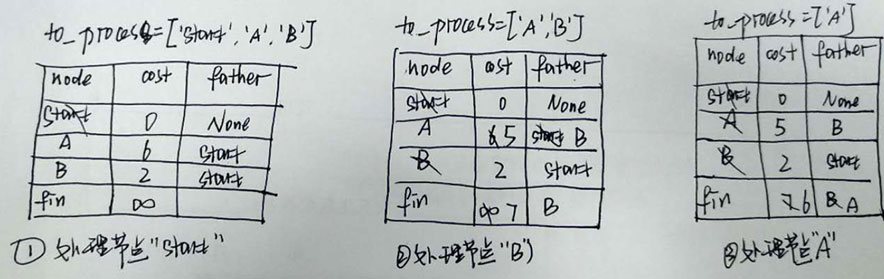 to_process=['start','A','B']
node cost father
start 0 None
A 6 start
B 2 start
fin ∞
① 处理节点"start"
to_process=['A','B']
node cost father
start 0 None
A 6 5 start B
B 2 start
fin ∞ 7 B
② 处理节点"B")
to_process=['A']
node cost father
start 0 None
A 5 B
B 2 start
fin 7 6 B A
③ 处理节点"A"